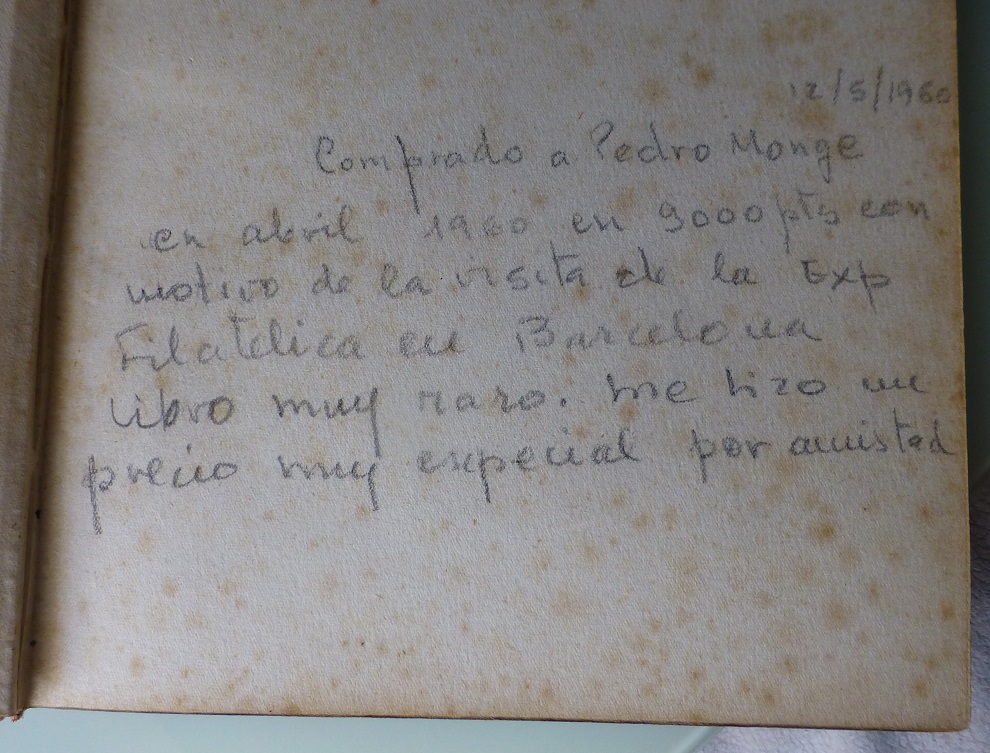 12/5/1960
Comprado a Pedro Monge
en abril 1960 en 9000 pts con
motivo de la visita de la Exp
Filatelica en Barcelona
libro muy raro. me hizo un
precio muy especial por amistad